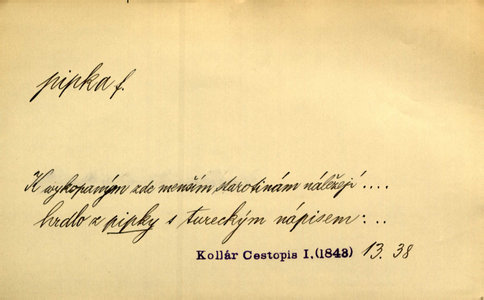 pipka f.
K wykopaným zde menším starotinám náležejí ....
hrdlo z pipky s tureckým nápisem: ..
Kollár Cestopis I. (1843) 13. 38